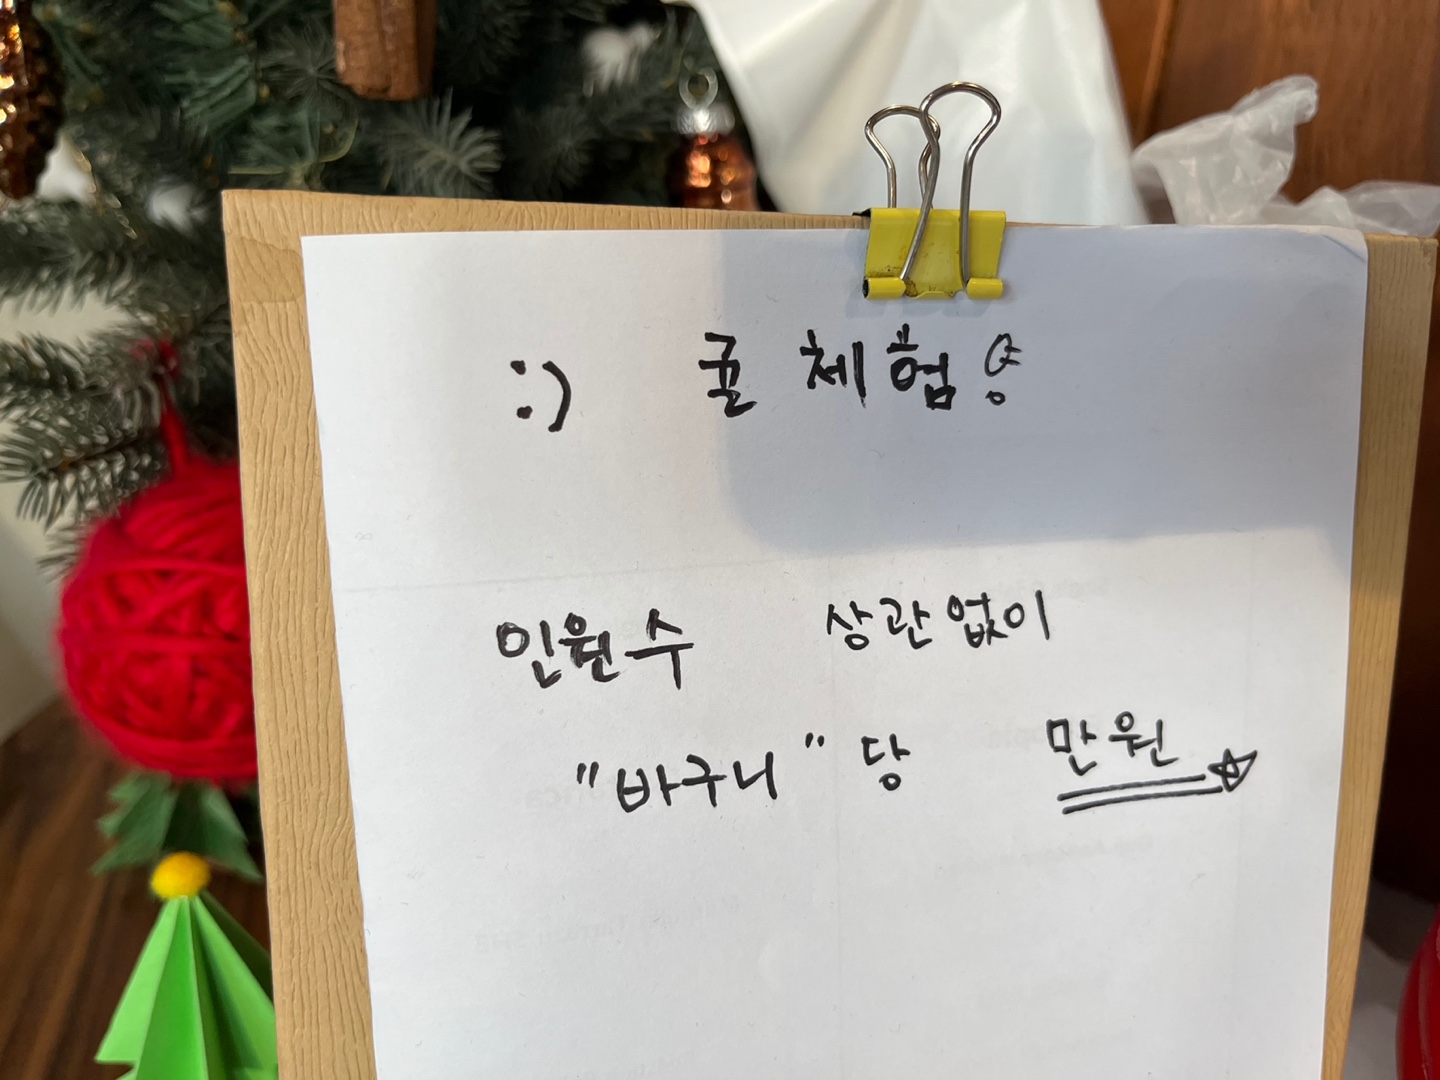 :) 귤 체험
인원수 상관없이
"바구니" 당 만원